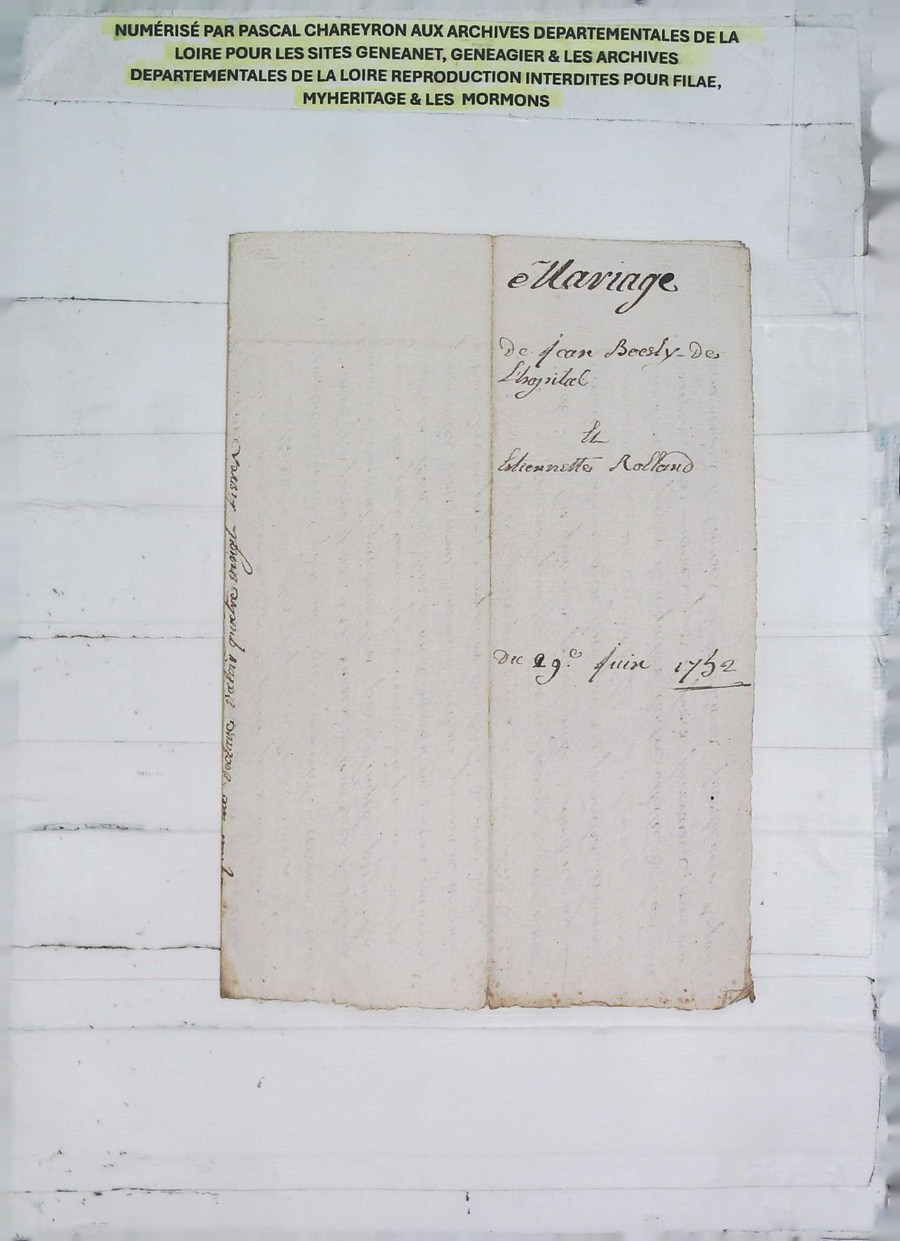 NUMÉRISÉ PAR PASCAL CHAREYRON AUX ARCHIVES DEPARTEMENTALES DE LA
LOIRE POUR LES SITES GENEANET, GENEAGIER & LES ARCHIVES
DEPARTEMENTALES DE LA LOIRE REPRODUCTION INTERDITES POUR FILAE,
MYHERITAGE & LES MORMONS
Mariage
de Jean De
L'hopital
Et
Estiennette Rolland
Du 29e Juin 1752
declare valoir quatre vingt livres